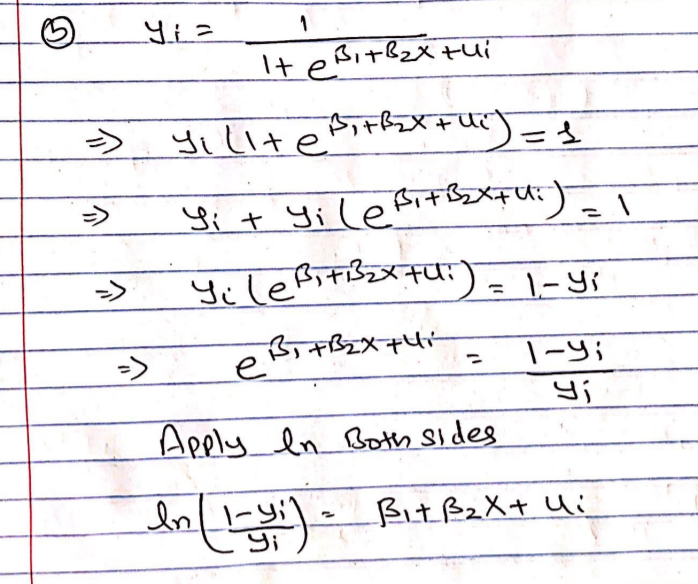 ⑤ yi = 1 / (1 + e^(β₁+β₂x+ui))
⇒ yi (1 + e^(β₁+β₂x+ui)) = 1
⇒ yi + yi (e^(β₁+β₂x+ui)) = 1
⇒ yi (e^(β₁+β₂x+ui)) = 1 - yi
⇒ e^(β₁+β₂x+ui) = (1-yi) / yi
Apply ln Both sides
ln((1-yi) / yi) = β₁+β₂X+ui